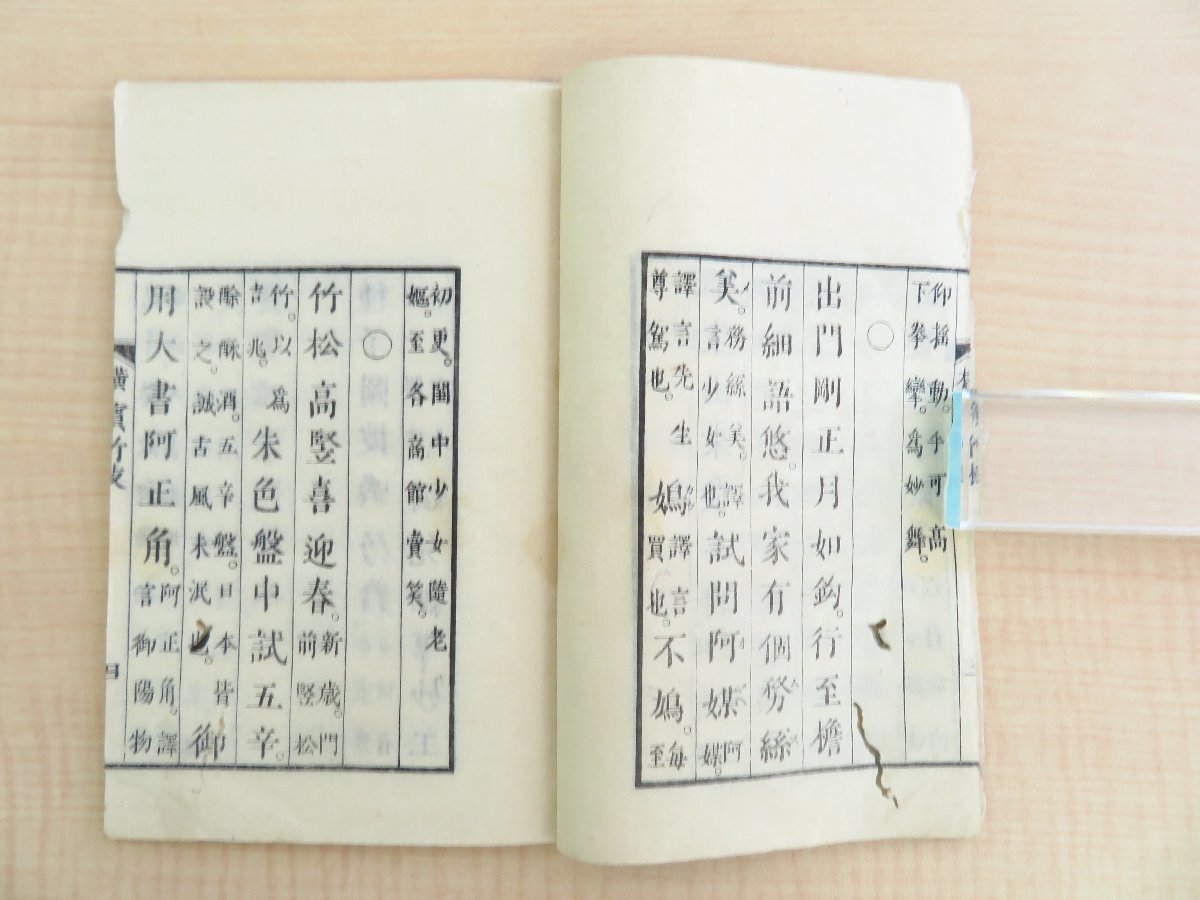 仰搖動。手可高
下拳攣。爲妙舞。
〇
出門剛正月如鈎。行至檐
前細語悠。我家有個勞絲
美。務絲美。譯言少女也。試問阿媒阿媒。
譯言先生尊駕也。譯言買也。不每至
初更。閩中少女隨老
嫗。至各商館賣笑。
〇
竹松高竪喜迎春。新歲門前竪松
竹。以爲吉兆。朱色盤中試五辛。
酴酥酒。五辛盤。日本皆設之。誠古風未泯也。御
用大書阿正角。阿正角。譯言御陽物
橫濱竹枝 四